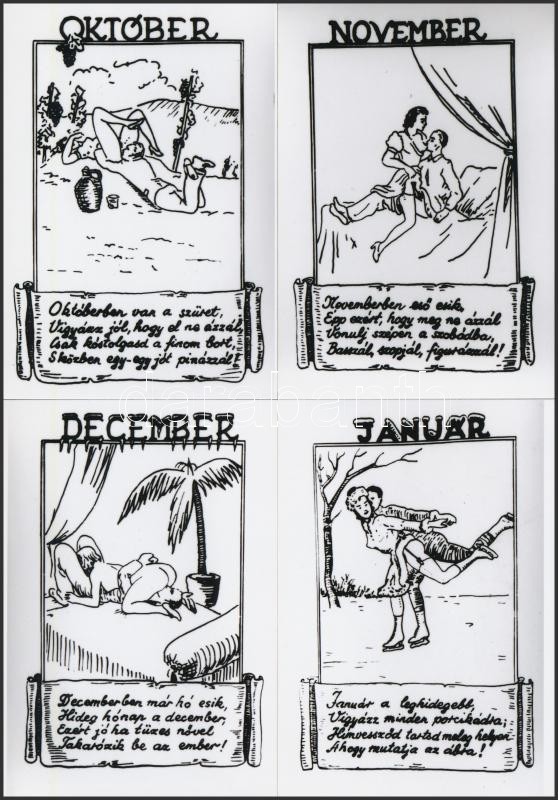 OKTÓBER
Októberben van a szüret,
Vigyázz jól, hogy el ne ázzál,
Csak kóstolgasd a finom bort,
S közben egy-egy jót pinázzál!
NOVEMBER
Novemberben eső esik,
Épp ezért, hogy meg ne ázzál
Vonulj szépen a szobádba,
Basszál, szopjál, figurázzál!
darabanth
DECEMBER
Decemberben már hó esik,
Hideg hónap a december,
Ezért jó ha tüzes nővel
Takarózik be az ember!
JANUÁR
Január a leghidegebb,
Vigyázz minden porcikádra,
Hímvessződ tartsd meleg helyen
Ahogy mutatja az ábra!